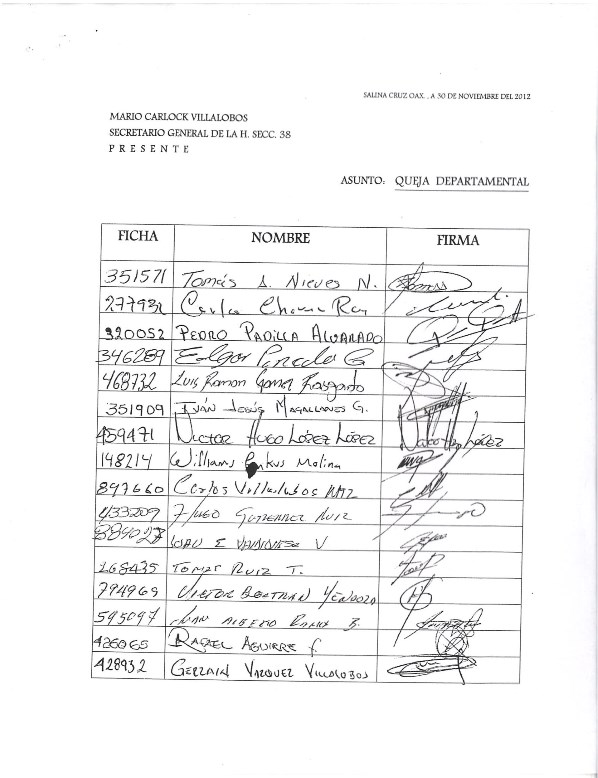 SALINA CRUZ OAX. , A 30 DE NOVIEMBRE DEL 2012
MARIO CARLOCK VILLALOBOS
SECRETARIO GENERAL DE LA H. SECC. 38
P R E S E N T E
ASUNTO: QUEJA DEPARTAMENTAL
FICHA NOMBRE FIRMA
351571 Tomás S. Nieves N.
277932 Carlos
320052 PEDRO PADILLA ALVARADO
346289 Edgar Pineda G.
468732 Luis Ramon Gomez Fragardo
351909 IVÁN JESÚS MAGALLANES G.
459471 VICTOR HUGO LÓPEZ LÓPEZ VICTOR HUGO LÓPEZ
148214 Williams Molina
897660 Carlos Villalobos MTZ
433209 HUGO GUTIERREZ RUIZ
884027 V
268435 TOMAS RUIZ T.
794969 VICTOR BELTRAN MENDOZA
595097 JUAN ALBERTO B.
426065 RAFAEL AGUIRRE F
428932 GERZAIN VAZQUEZ VILLALOBOS